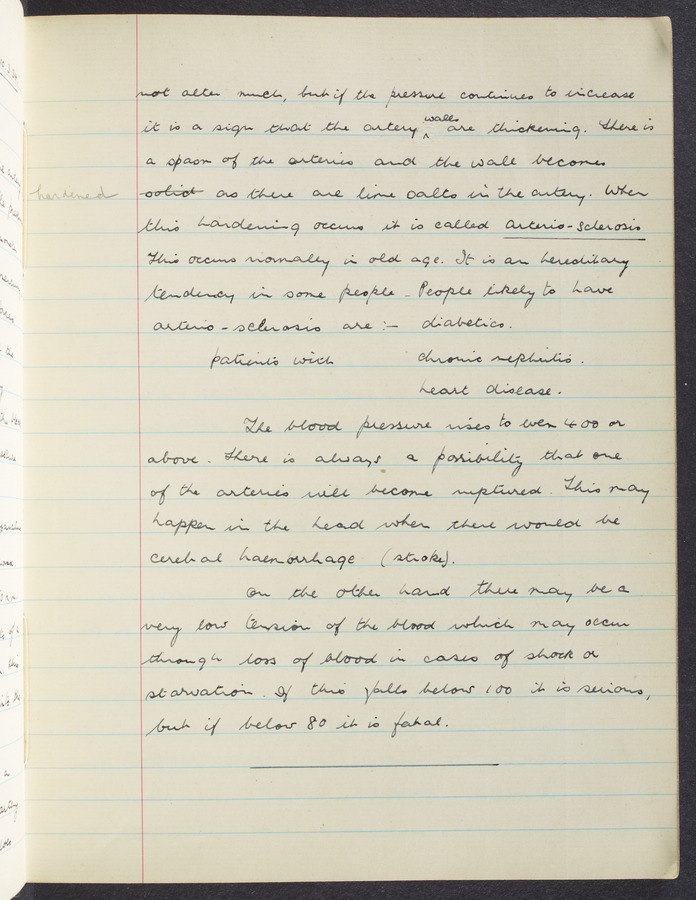 not alter much, but if the pressure continues to increase
it is a sign that the artery walls are thickening. There is
a spasm of the arteries and the wall becomes
hardened solid as there are lime salts in the artery. When
this hardening occurs it is called arterio-sclerosis
This occurs normally in old age. It is an hereditary
tendency in some people - People likely to have
arterio-sclerosis are :- diabetics.
patients with chronic nephritis.
heart disease.
The blood pressure rises to even 400 or
above. There is always a possibility that one
of the arteries will become ruptured. This may
happen in the head when there would be
cerebral haemorrhage (stroke).
On the other hand there may be a
very low tension of the blood which may occur
through loss of blood in cases of shock or
starvation. If this falls below 100 it is serious,
but if below 80 it is fatal.